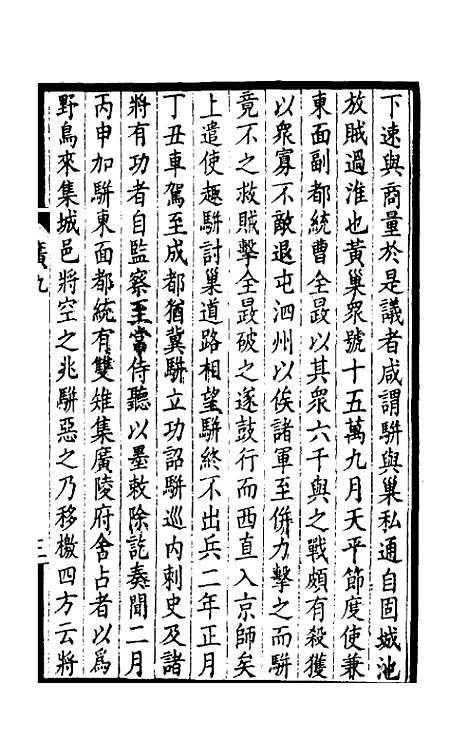 下速與商量於是議者咸謂駢與巢私通自固城池
放賊過淮也黃巢衆號十五萬九月天平節度使兼
東面副都統曹全晸以其衆六千與之戰頗有殺獲
以衆寡不敵退屯泗州以俟諸軍至併力擊之而駢
竟不之救賊擊全晸破之遂鼓行而西直入京師矣
上遣使趣駢討巢道路相望駢終不出兵二年正月
丁丑車駕至成都猶冀駢立功詔駢巡內刺史及諸
將有功者自監察至常侍聽以墨敕除訖奏聞二月
丙申加駢東面都統有雙雉集廣陵府舍占者以爲
野鳥來集城邑將空之兆駢惡之乃移檄四方云將
廣九
三